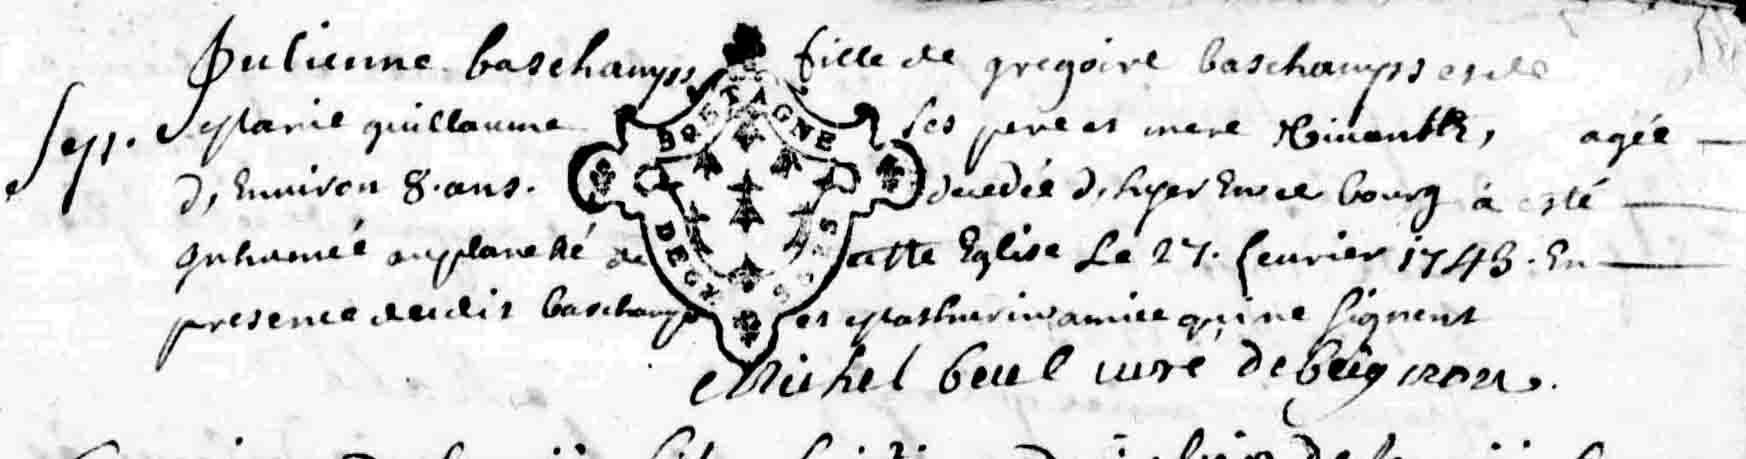 Julienne baschamps fille de gregoire baschamps et de
Sep. Marie guillaume ses pere et mere vivants, agée
d'Environ 8. ans. decedée d'hyer En ce bourg à esté
Inhumée au planché de cette Eglise Le 27. feurier 1743. En
presence dudit baschamps et Mathurin amice qui ne signent
Michel beul curé de beignon.
BRETAGNE